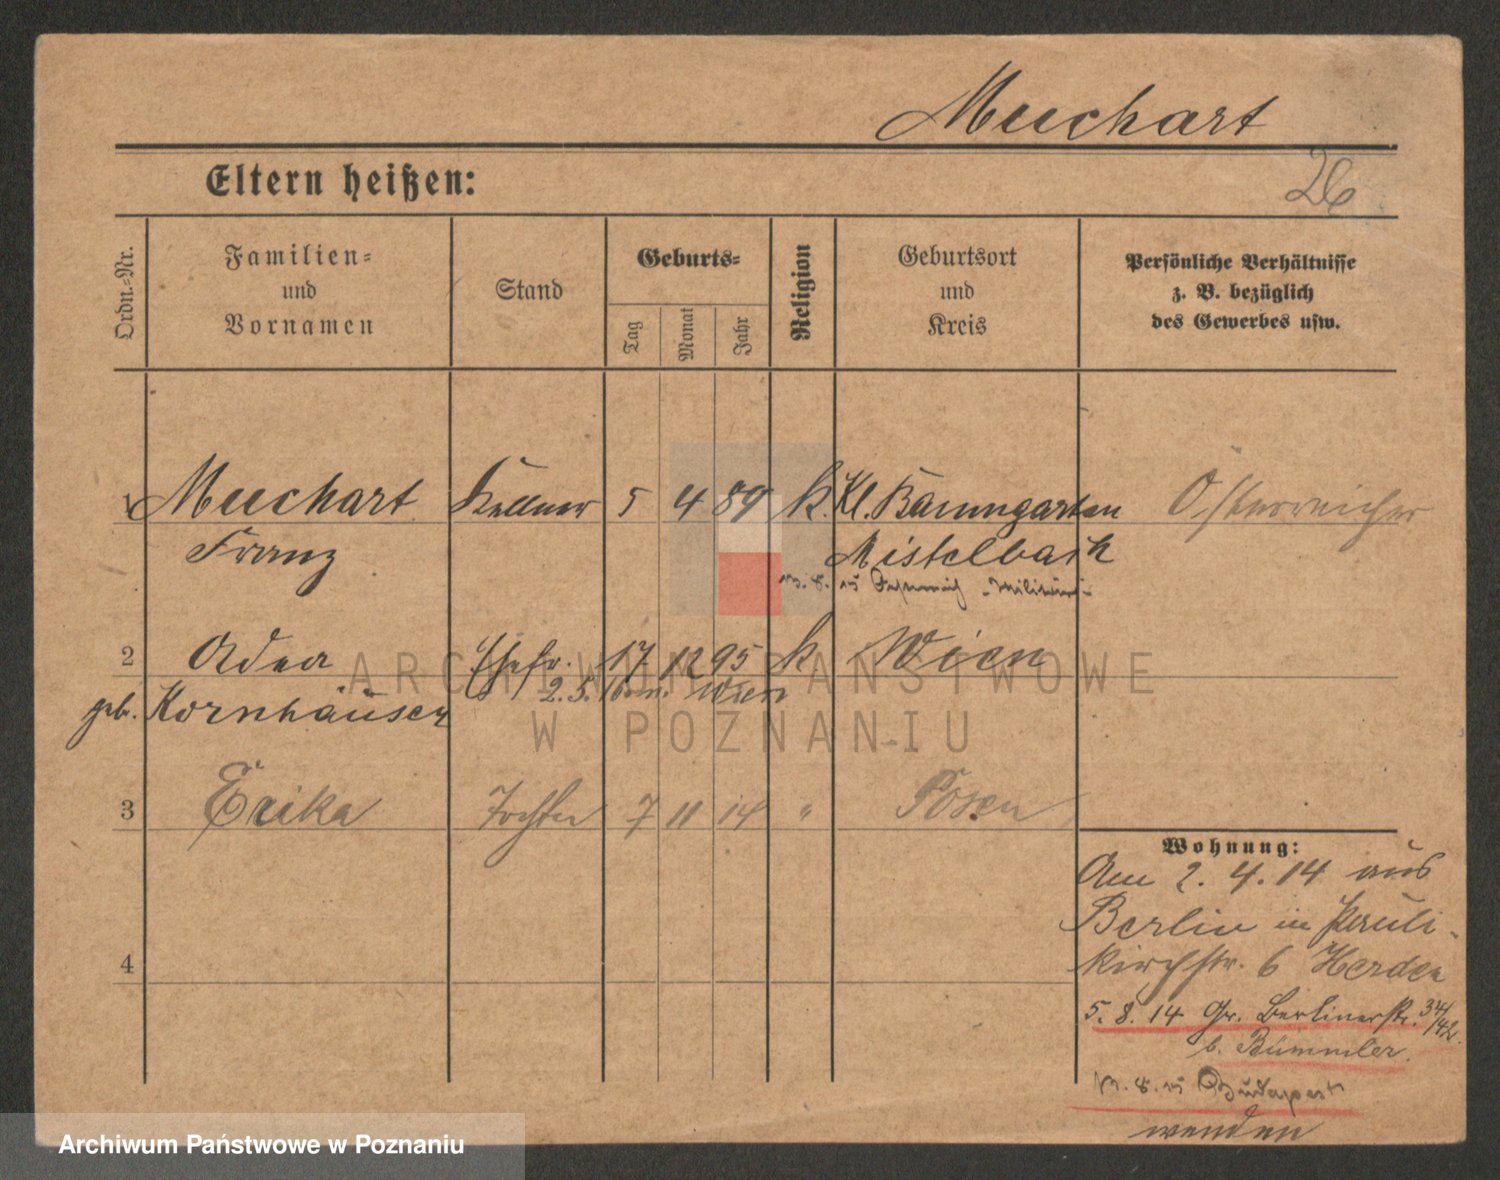 Muchart
Eltern heißen:
26
Ordn.-Nr.
Familien-
und
Vornamen
Stand
Geburts-
Tag
Monat
Jahr
Religion
Geburtsort
und
Kreis
Persönliche Verhältnisse
z. B. bezüglich
des Gewerbes usw.
1 Muchart Kellner 5 4 89 k. Kl. Baumgarten Österreicher
Franz Mistelbach
8. 15 Militär
2 Adna Ehefr. 17 12 95 k Wien
2. 5. Wien
geb. Kornhäuser
3 Erika Tochter 7 11 14 " Posen
Wohnung:
Am 2. 4. 14 aus
Berlin in Pauli-
kirchstr. 6 Herden
5. 8. 14 Gr. Berlinerstr. 34/42
b. Bümmler.
8. 15 Budapest
wenden
4
ARCHIWUM PAŃSTWOWE
W POZNANIU
Archiwum Państwowe w Poznaniu